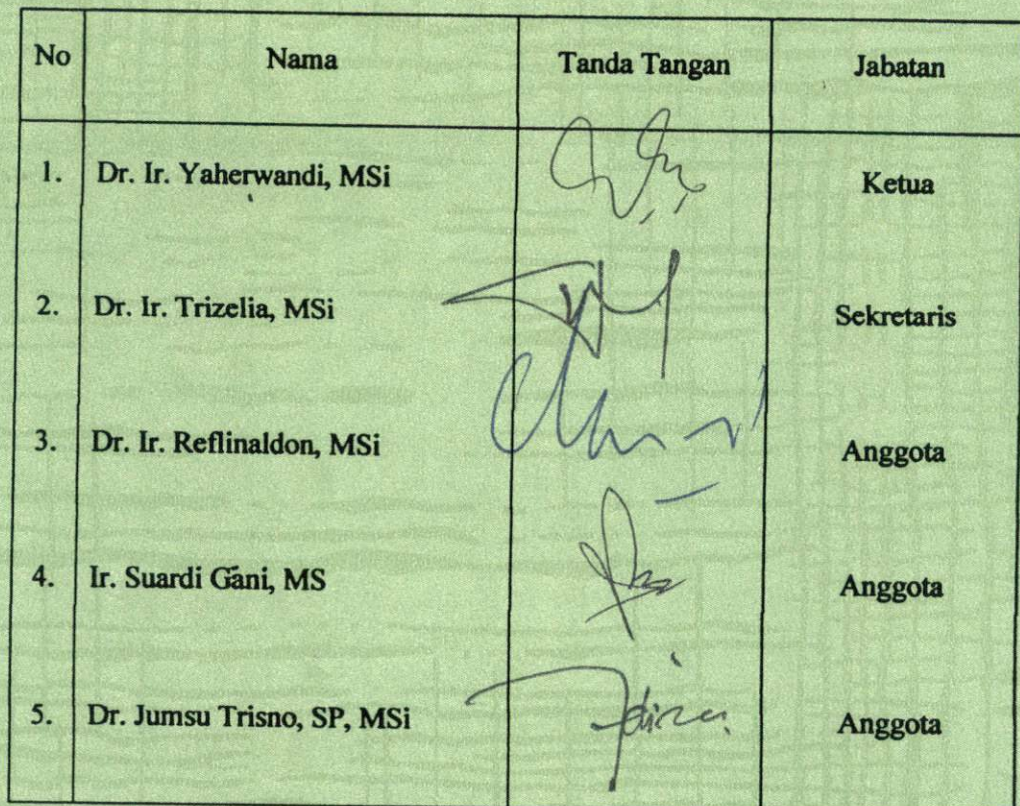 No Nama Tanda Tangan Jabatan
1. Dr. Ir. Yaherwandi, MSi Ketua
2. Dr. Ir. Trizelia, MSi Sekretaris
3. Dr. Ir. Reflinaldon, MSi Anggota
4. Ir. Suardi Gani, MS Anggota
5. Dr. Jumsu Trisno, SP, MSi Anggota